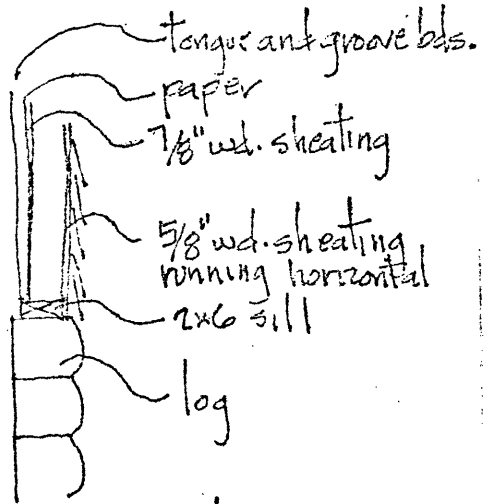 tongue and groove bds.
paper
7/8" wd. sheating
5/8" wd. sheating
running horizontal
2x6 sill
log